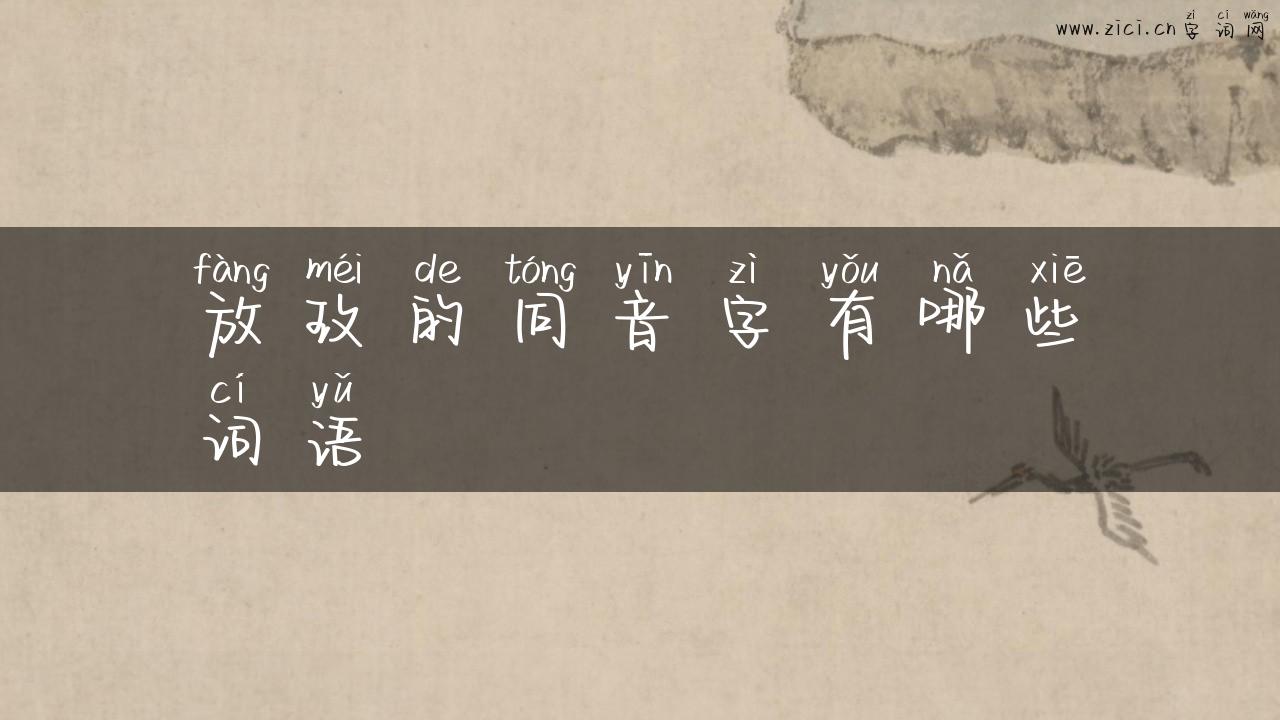 zì cí wǎng
www.zici.cn字词网
fàng méi de tóng yīn zì yǒu nǎ xiē
放玫的同音字有哪些
cí yǔ
词语